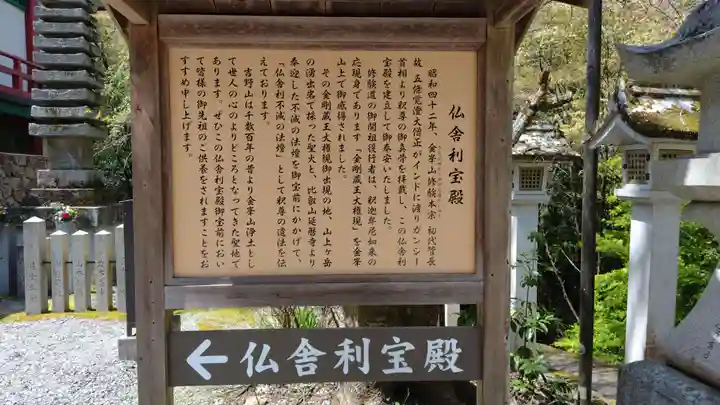 仏舎利宝殿
昭和四十二年、金峯山修験本宗 初代管長
故 五條覚澄大僧正がインドに渡りガンジー
首相より釈尊の御真骨を拝戴し、この仏舎利
宝殿を建立して御奉安いたしました。
修験道の御開祖役行者は、釈迦牟尼如来の
応現身であります「金剛蔵王大権現」を金峯
山上で御感得されました。
その金剛蔵王大権現御出現の地、山上ヶ岳
の湧出岩で採った聖火と、比叡山延暦寺より
奉迎した不滅の法燈を御宝前にかかげて、
「仏舎利不滅の法燈」として釈尊の遺法を伝
えております。
吉野山は千数百年の昔より金峯山浄土とし
て世人の心のよりどころとなってきた聖地で
あります。ぜひこの仏舎利宝殿御宝前におい
て皆様の御先祖のご供養をされますことをお
すすめ申し上げます。
←仏舎利宝殿